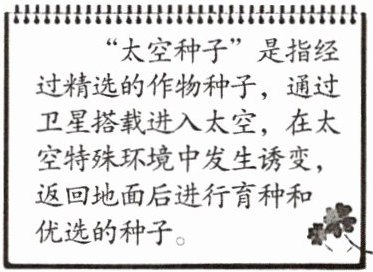 “太空种子”是指经
过精选的作物种子，通过
卫星搭载进入太空，在太
空特殊环境中发生诱变，
返回地面后进行育种和
优选的种子。